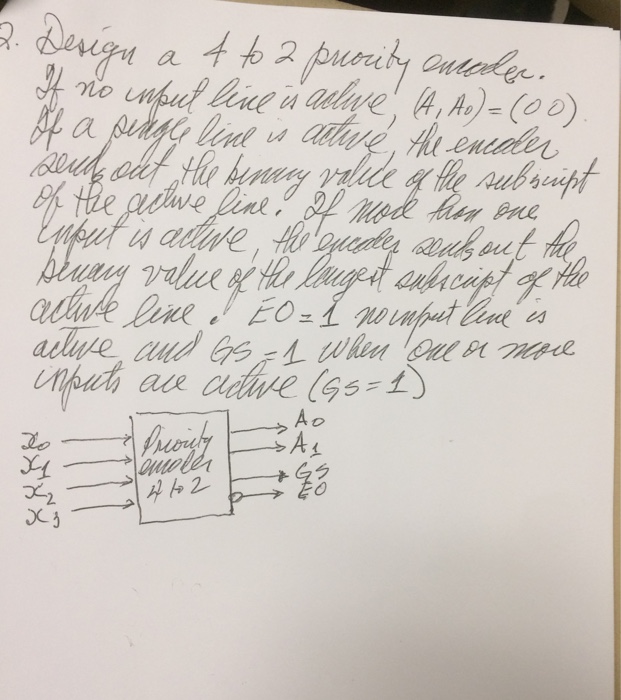 2. Design a 4 to 2 priority encoder.
If no input line is active, (A, A0) = (00).
If a single line is active, the encoder
sends out the binary value of the subscript
of the active line. If more than one
input is active, the encoder sends out the
binary value of the largest subscript of the
active line. EO = 1 no input line is
active and GS = 1 when one or more
inputs are active (GS = 1)
x0 Priority A0
x1 encoder A1
x2 4 to 2 GS
x3 EO